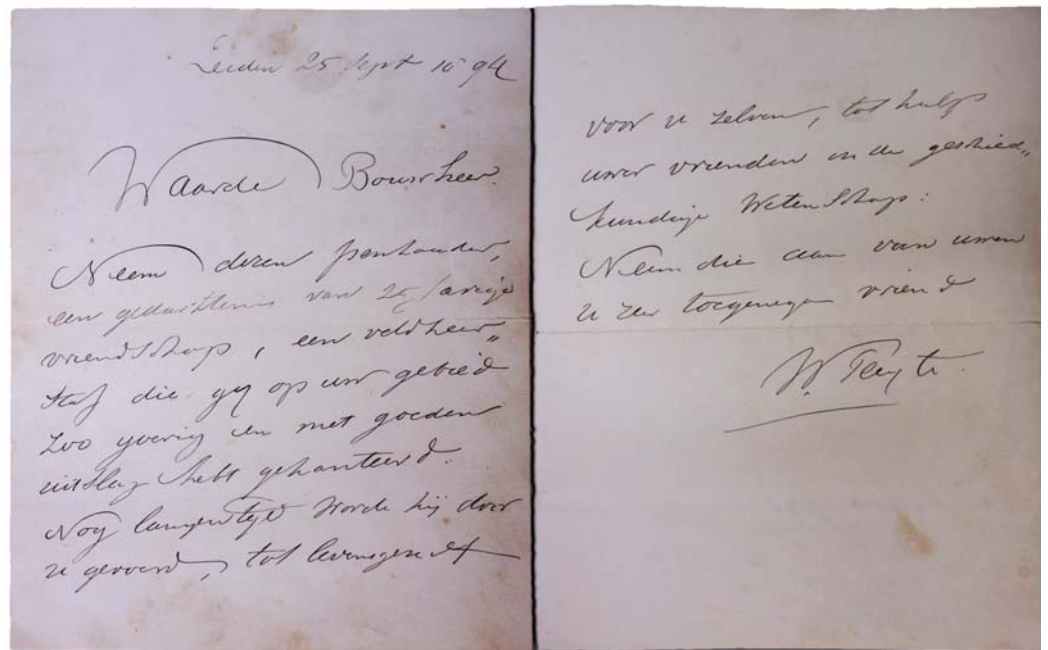 Leiden 25 Sept 1894
Waarde Bouwheer.
Neem dezen penhouder,
een gedachtenis van 25 jarige
vriendschap, een veldheer„
staf die gij op uw gebied
zoo yverig en met goeden
uitslag hebt gehanteerd.
Nog langen tyd worde hij door
u gevoerd, tot levensgenot
voor u zelven, tot hulp
uwer vrienden in de geschied„
kundige Wetenschap:
Neem die aan van uwen
u zeer toegenegen vriend
W. Pleyte.